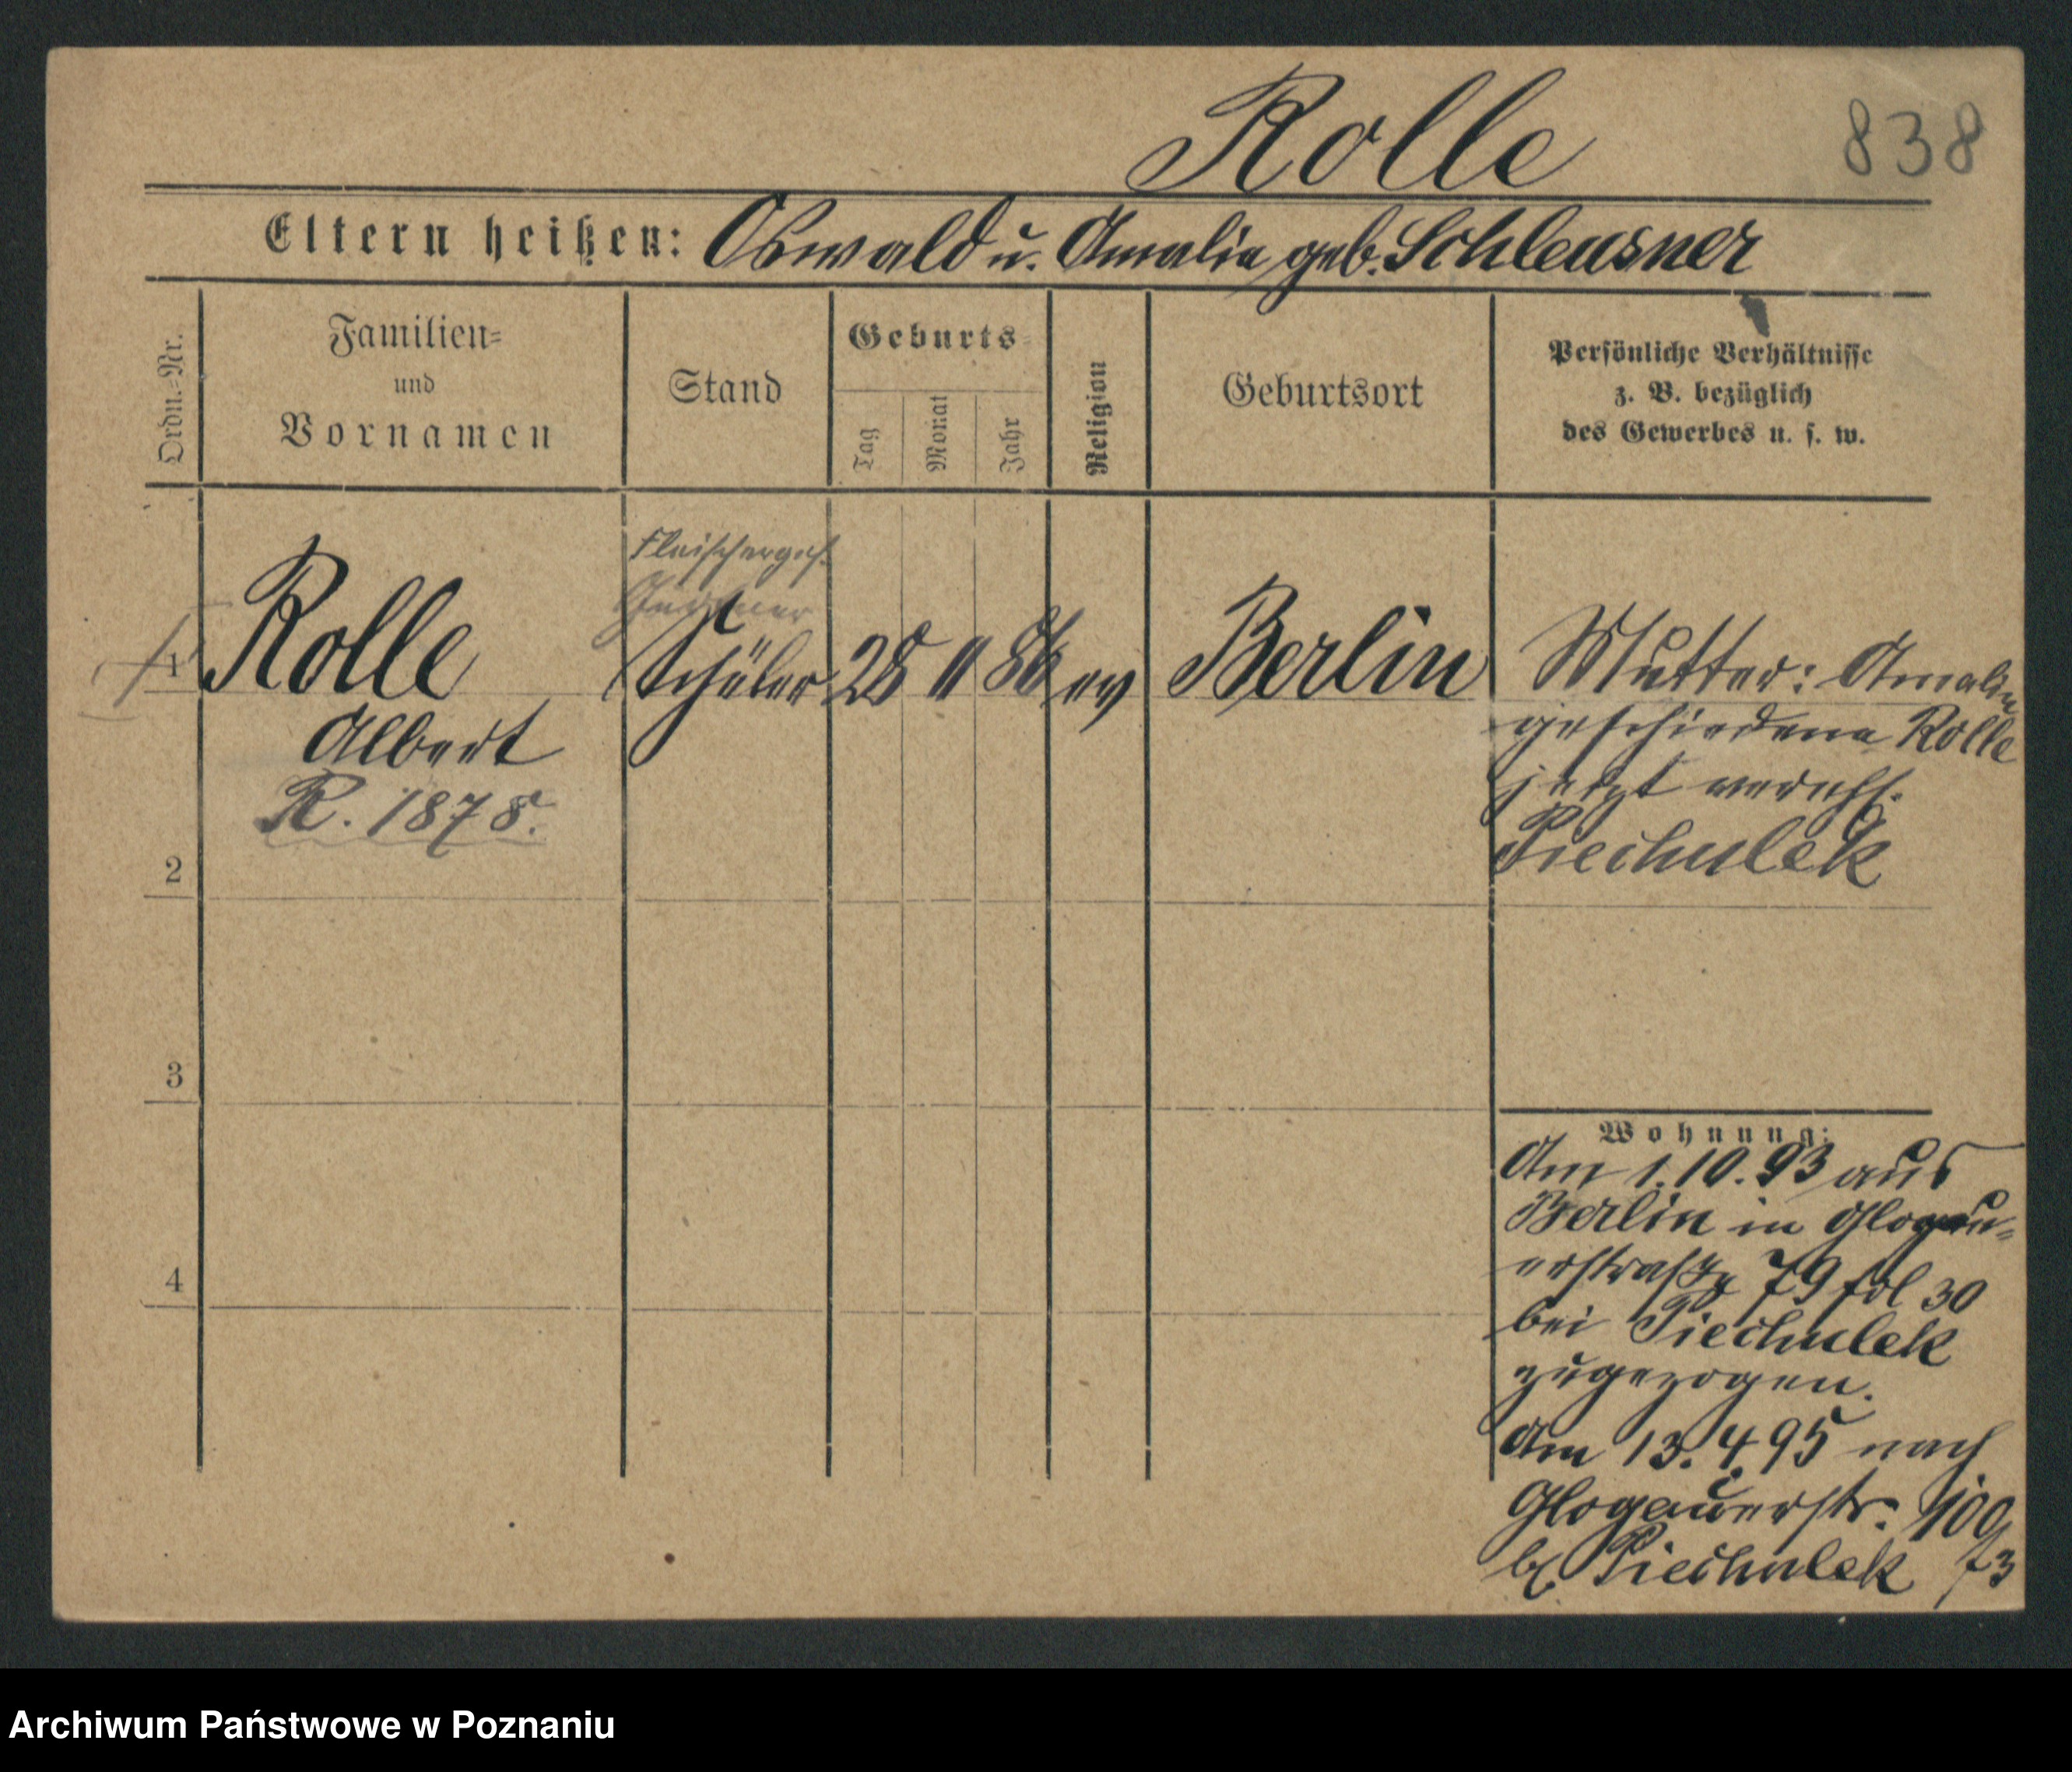 Rolle
838
Eltern heißen: Oswald u. Amalie geb. Schleusner
Ordn.-Nr.
Familien-
und
Vornamen
Stand
Geburts-
Tag
Monat
Jahr
Religion
Geburtsort
Persönliche Verhältnisse
z. B. bezüglich
des Gewerbes u. s. w.
Fleischerges.
1 Rolle Schüler 28 11 86 ev Berlin
Albert
R. 1878.
Mutter: Amalie
geschiedene Rolle
jetzt verehl.
Piechulek
2
3
4
Wohnung:
Am 1.10.93 aus
Berlin in Glogau-
erstraße 79 fol 30
bei Piechulek
zugezogen.
Am 13.4 95 nach
Glogauerstr. 109
b/ Piechulek f 3
Archiwum Państwowe w Poznaniu